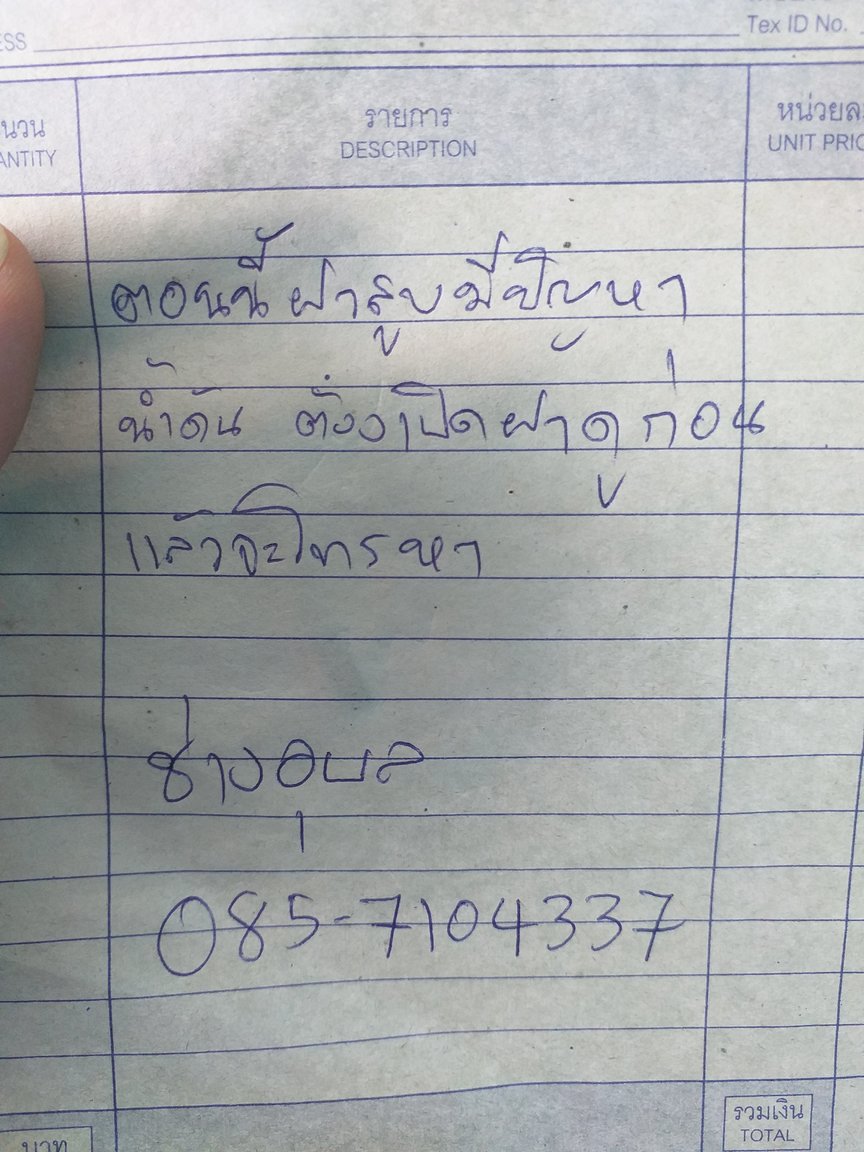 ESS
Tex ID No.
รายการ
DESCRIPTION
นวน
ANTITY
หน่วยละ
UNIT PRIC
ตอนนี้ ฝาสูบมีปัญหา
น้ำดัน ต้องเปิดฝาดูก่อน
แล้วจะโทรหา
ช่างอุบล
085-7104337
บาท
รวมเงิน
TOTAL